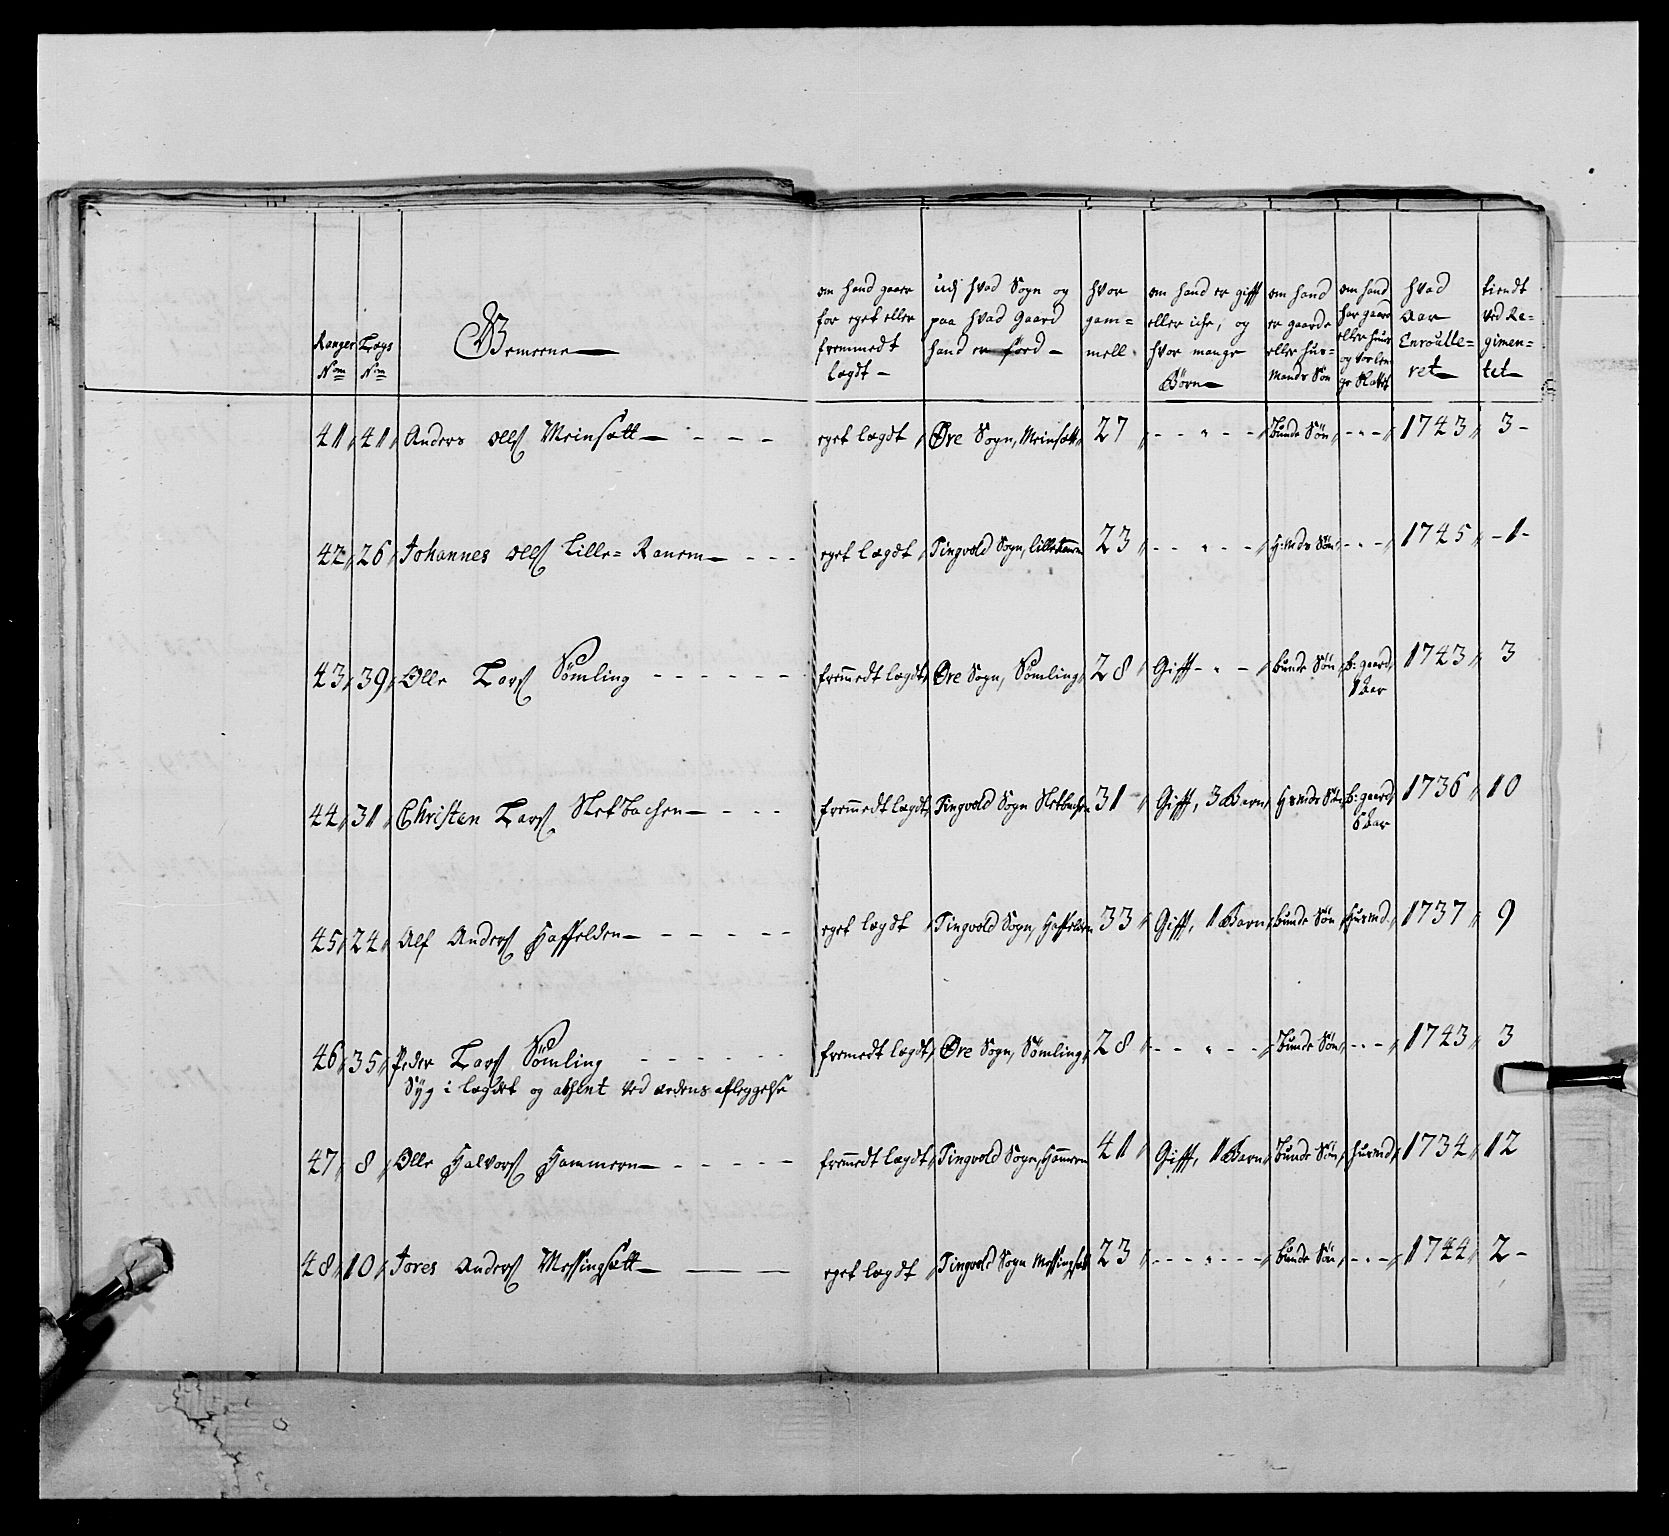 Ranger Nom
Lægs Nm
Gemeene
om hand gaaer for eget eller fremmedt lægdt
udj hvad Sogn og paa hvad Gaard hand er föed
hvor gam= mell
om hand er gifft eller iche, og hvor mange Börn
om hand er gaards eller huus= mands Sön
om hand har gaard eller huus og vor len ge
hvad Aar Enroulle= ret
tiendt ved Re= gimen= tet
41 41 Anders Olls Meinsætt - - - eget lægdt Øre Sogn, Meinsætt 27 - - - - bunde Sön - - - 1743 3 -
42 26 Johannes Olls Lille= Ranem - - - eget lægdt Tingvold Sogn, lille Ranem 23 - - - - H:mds Sön - - - 1745 - 1 -
43 39 Olle Lars Sömling - - - - - - fremmedt lægdt Øre Sogn, Sömling 28 Gifft - - - bunde Sön b: gaard 1 Aar 1743 3
44 31 Christen Lars Sletbachen - - - fremmedt lægdt Tingvold Sogn Sletbachen 31 Gifft, 3 Barn H:mds Sön b: gaard 6 Aar 1736 10
45 24 Alf Anders Hoffelden - - - - - eget lægdt Tingvold Sogn, Hoffelden 33 Gifft, 1 Barn bunde Sön Husmd 1737 9
46 35 Peder Lars Sömling - - - - - - fremedt lægdt Øre Sogn, Sömling 28 - - - - bunde Sön - - - 1743 3
Syg i lægdet og absent ved aedens afleggelse
47 8 Olle Halvors Hammeren - - - - - fremmedt lægdt Tingvold Sogn, Hameren 41 Gifft, 1 Barn bunde Sön husmd 1734 12
48 10 Tores Anders Messingsætt - - - eget lægdt Tingvold Sogn Messingsætt 23 - - - - - bunde Sön - - - 1744 2 -